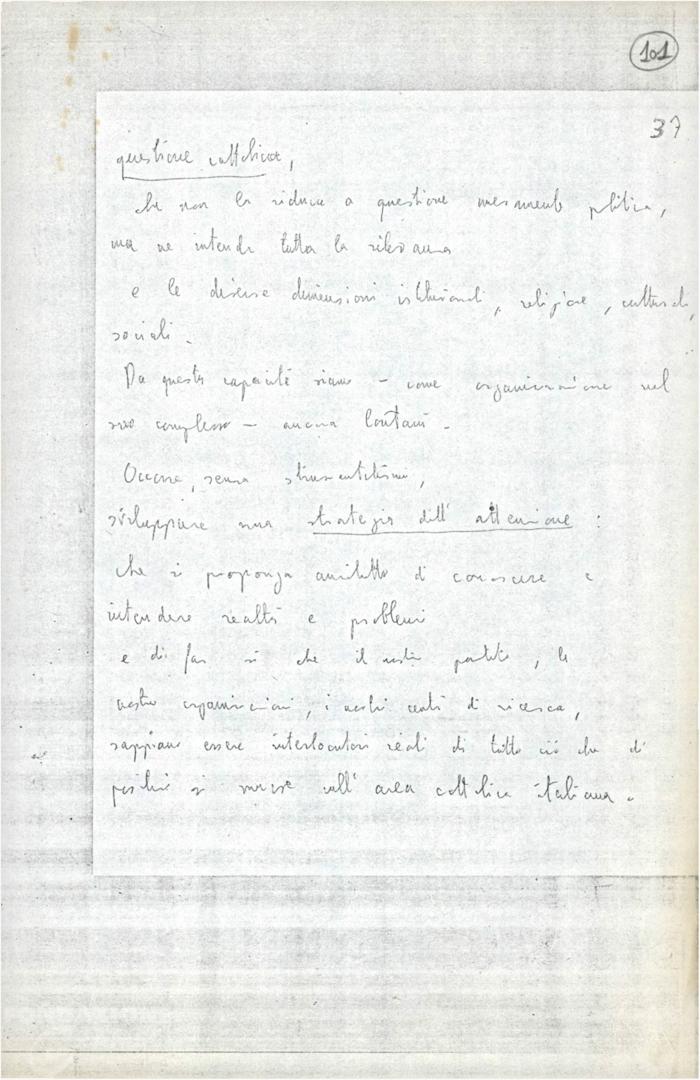 101
37
questione cattolica,
che non la riduca a questione meramente politica,
ma ne intenda tutta la rilevanza
e le diverse dimensioni istituzionali, religiose, culturali,
sociali.
Da questa capacità siamo – come organizzazione nel
suo complesso – ancora lontani.
Occorre, senza strumentalismi,
sviluppare una strategia dell'attenzione :
che si proponga anzitutto di conoscere e
intendere realtà e problemi
e di far sì che il nostro partito, le
nostre organizzazioni, i nostri centri di ricerca,
sappiano essere interlocutori reali di tutto ciò che di
positivo si muove nell'area cattolica italiana.